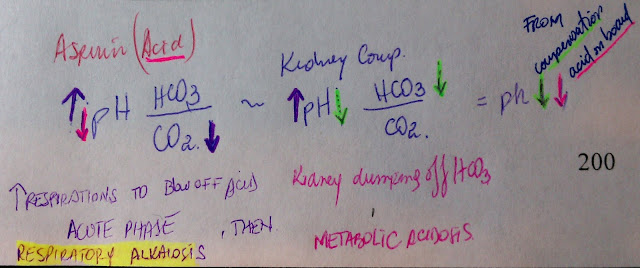 Aspirin (Acid)
↑↓ pH HCO3 / CO2 ↓
~ Kidney Comp.
↑ pH ↓ HCO3 / CO2. ↓
= ph ↓ ↓
FROM
compensation
acid on board
200
↑ RESPIRATIONS TO BlOW OFF ACID
ACUTE PHASE , THEN
RESPIRATORY ALKALOSIS
Kidney dumping off HCO3
METABOLIC ACIDOSIS.